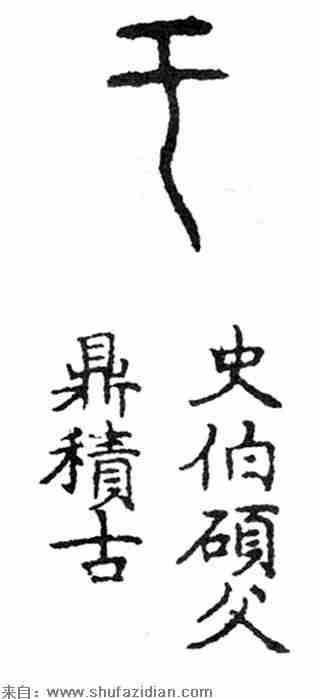 于
史伯碩父
鼎積古
来自：www.shufazidian.com